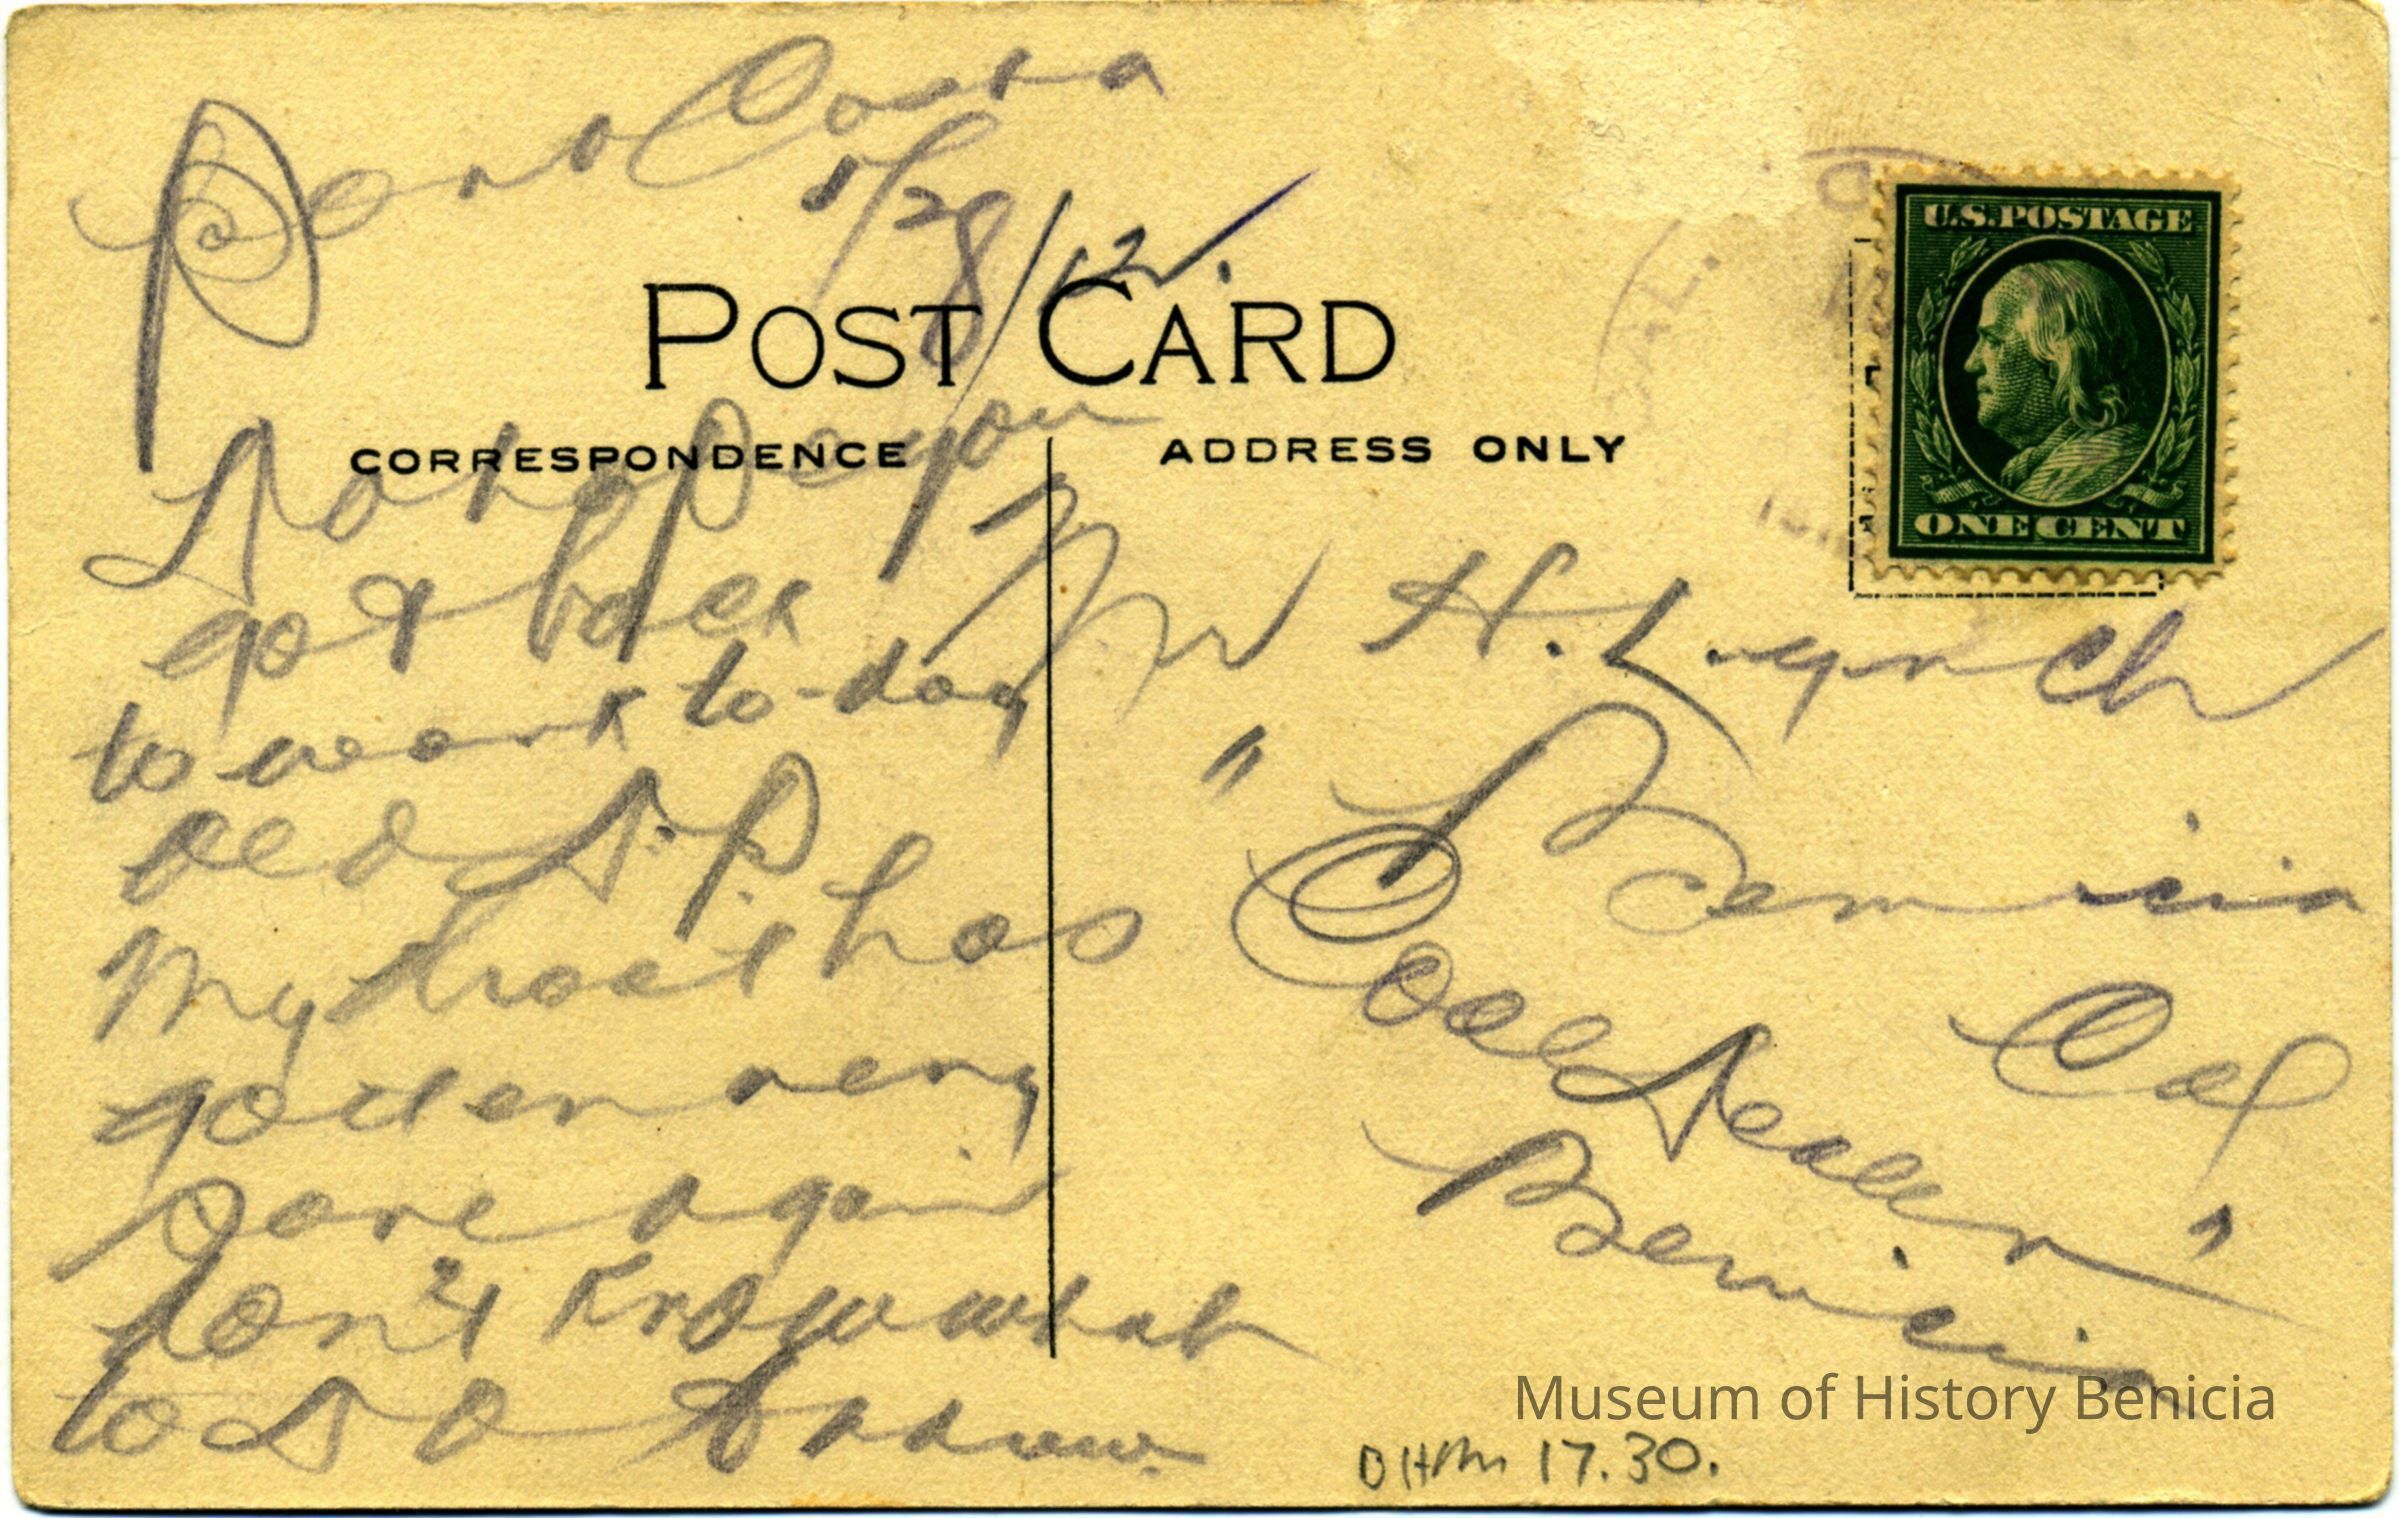 Port Costa
1/28/12.
POST CARD
CORRESPONDENCE
ADDRESS ONLY
U.S. POSTAGE
ONE CENT
CAL.
you
got back
to work to-day
old S.P.
My throat has
gotten very
sore again
don't know what
to do
Mr H. Lynch
" Benicia
Cal
Coal Dealer "
Benicia
Museum of History Benicia
BHM 17.30.